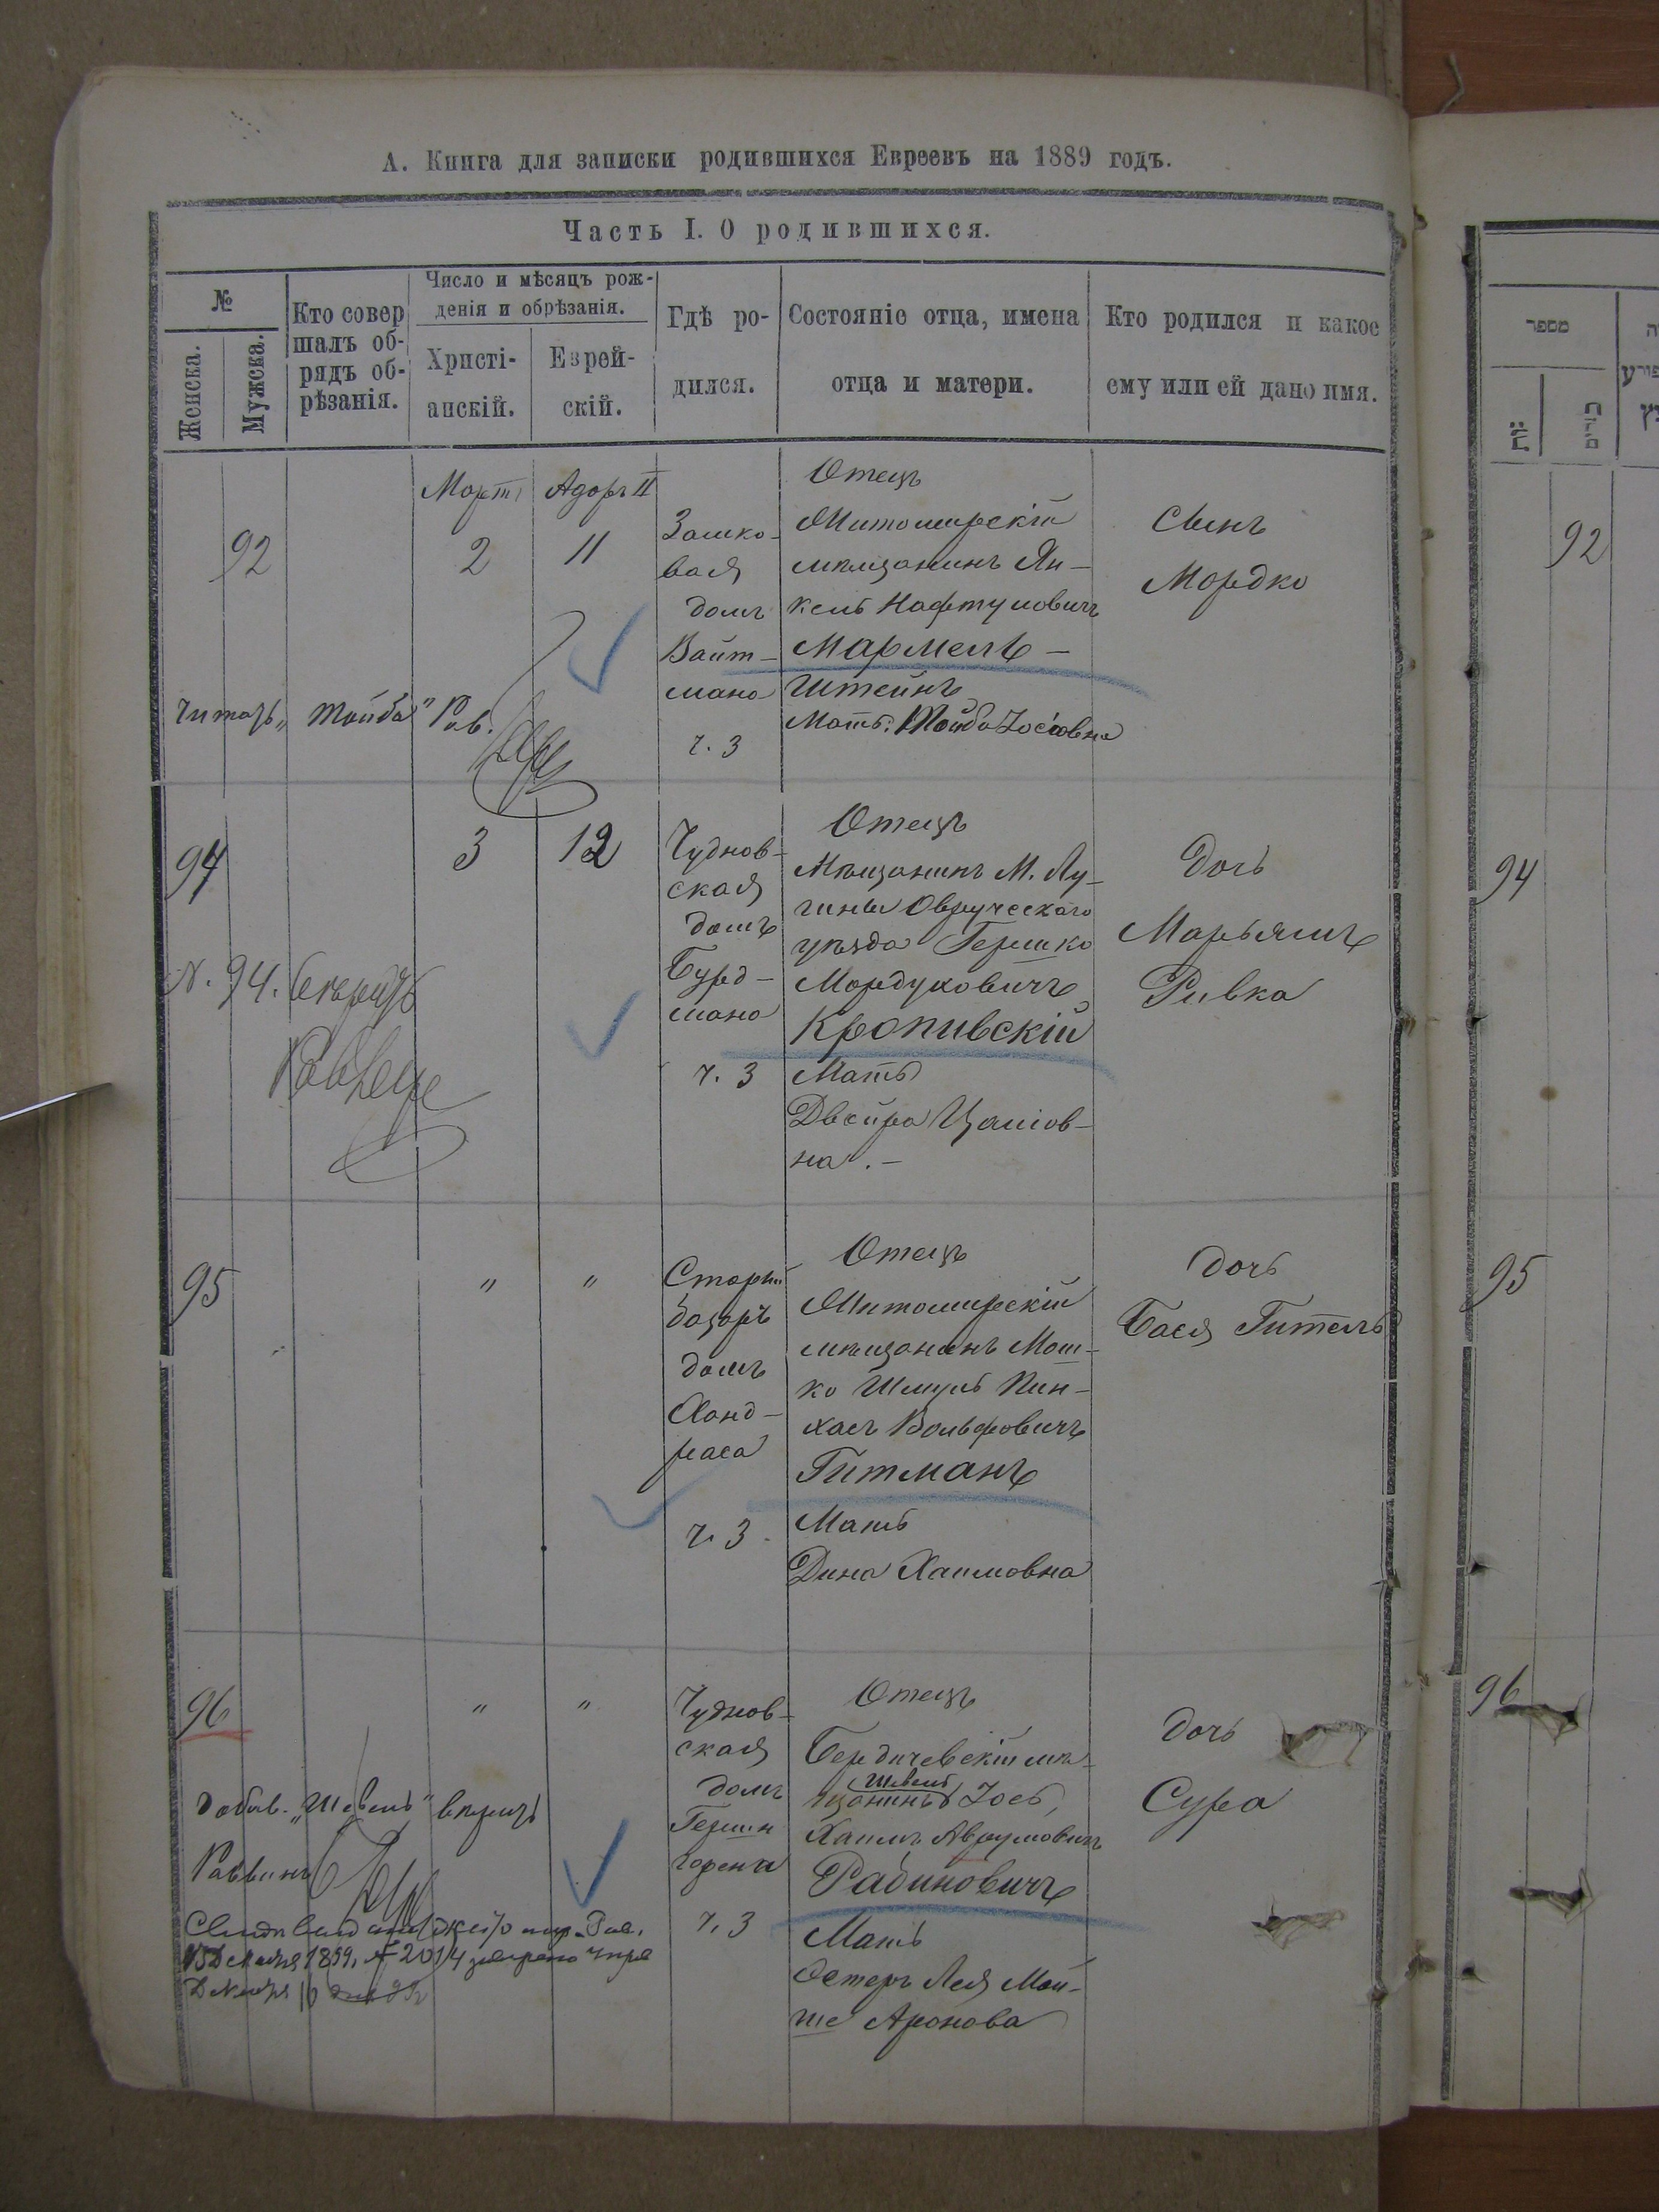 А. Книга для записки родившихся Евреевъ на 1889 годъ.
Часть I. О родившихся.
№
Женска.
Мужска.
Кто совер
шалъ об-
рядъ об-
рѣзанія.
Число и мѣсяцъ рож-
денія и обрѣзанія.
Христі-
анскій.
Еврей-
скій.
Гдѣ ро-
дился.
Состояніе отца, имена
отца и матери.
Кто родился и какое
ему или ей дано имя.
92
Мартъ
2
Адаръ II
11
вая
домъ
Вайт-
мана
ч. 3
Отецъ
Житомирскій
мѣщанинъ Ян-
кель Нафтуловичъ
Мармель-
штейнъ
Мать: Тойба Іосіовна
Сынъ
Мордко
Читать „Тойба" Рав.
94
3
12
Чуднов-
ская
домъ
Бурд-
мана
ч. 3
Отецъ
Мѣщанинъ М. Лу-
гины Овручскаго
уѣзда Гершко
Мордуховичъ
Кропивскій
Мать
Двейра
на.-
Дочь
Марьямъ
Ривка
N. 94.
95
"
"
Старый
базаръ
домъ
Ханд-
раса
ч. 3
Отецъ
Житомирскій
мѣщанинъ Мош-
ко Шмуль Пин-
хасъ Вольфовичъ
Гитманъ
Мать
Дина Хаимовна
Дочь
Бася Гитель
96
"
"
Чуднов-
ская
домъ
Герши
ч. 3
Отецъ
Бердичевскій мѣ-
Шевель
щанинъ Іось,
Хаимъ Аврумовичъ
Рабиновичъ
Мать
Эстеръ Лея Мой-
ше Аронова
Дочь
Сура
добав. „Шевель"
Раввинъ
מספר
92
94
95
96